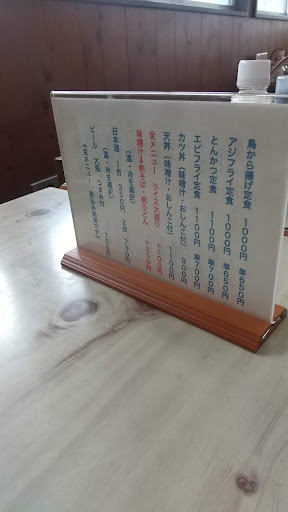 鳥から揚げ定食 1000円 単650円
アジフライ定食 1000円 単650円
とんかつ定食 1100円 単700円
エビフライ定食 1100円 単700円
カツ丼(味噌汁・おしんこ付) 900円
天丼(味噌汁・おしんこ付) 1100円
全メニュー ライス大盛り +100円
味噌汁➔半そば・半うどん +250円
日本酒 1合 350円 2合 700円
(温・冷を選択)
(温・冷を選択)
ビール 大瓶 つまみ付 700円